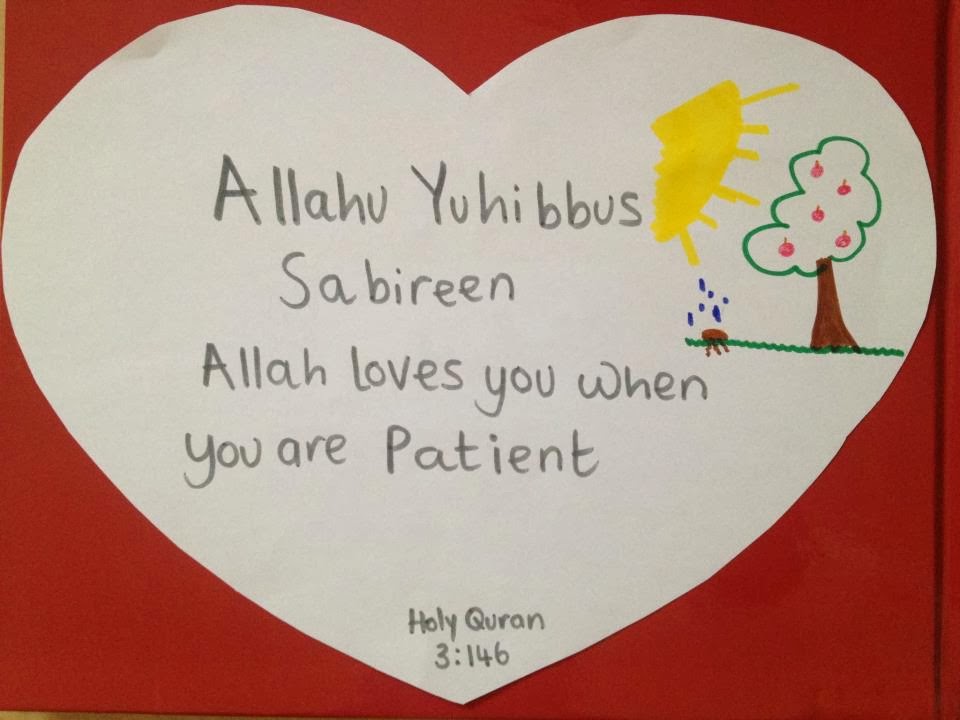 Allahu Yuhibbus
Sabireen
Allah loves you when
you are Patient
Holy Quran
3:146